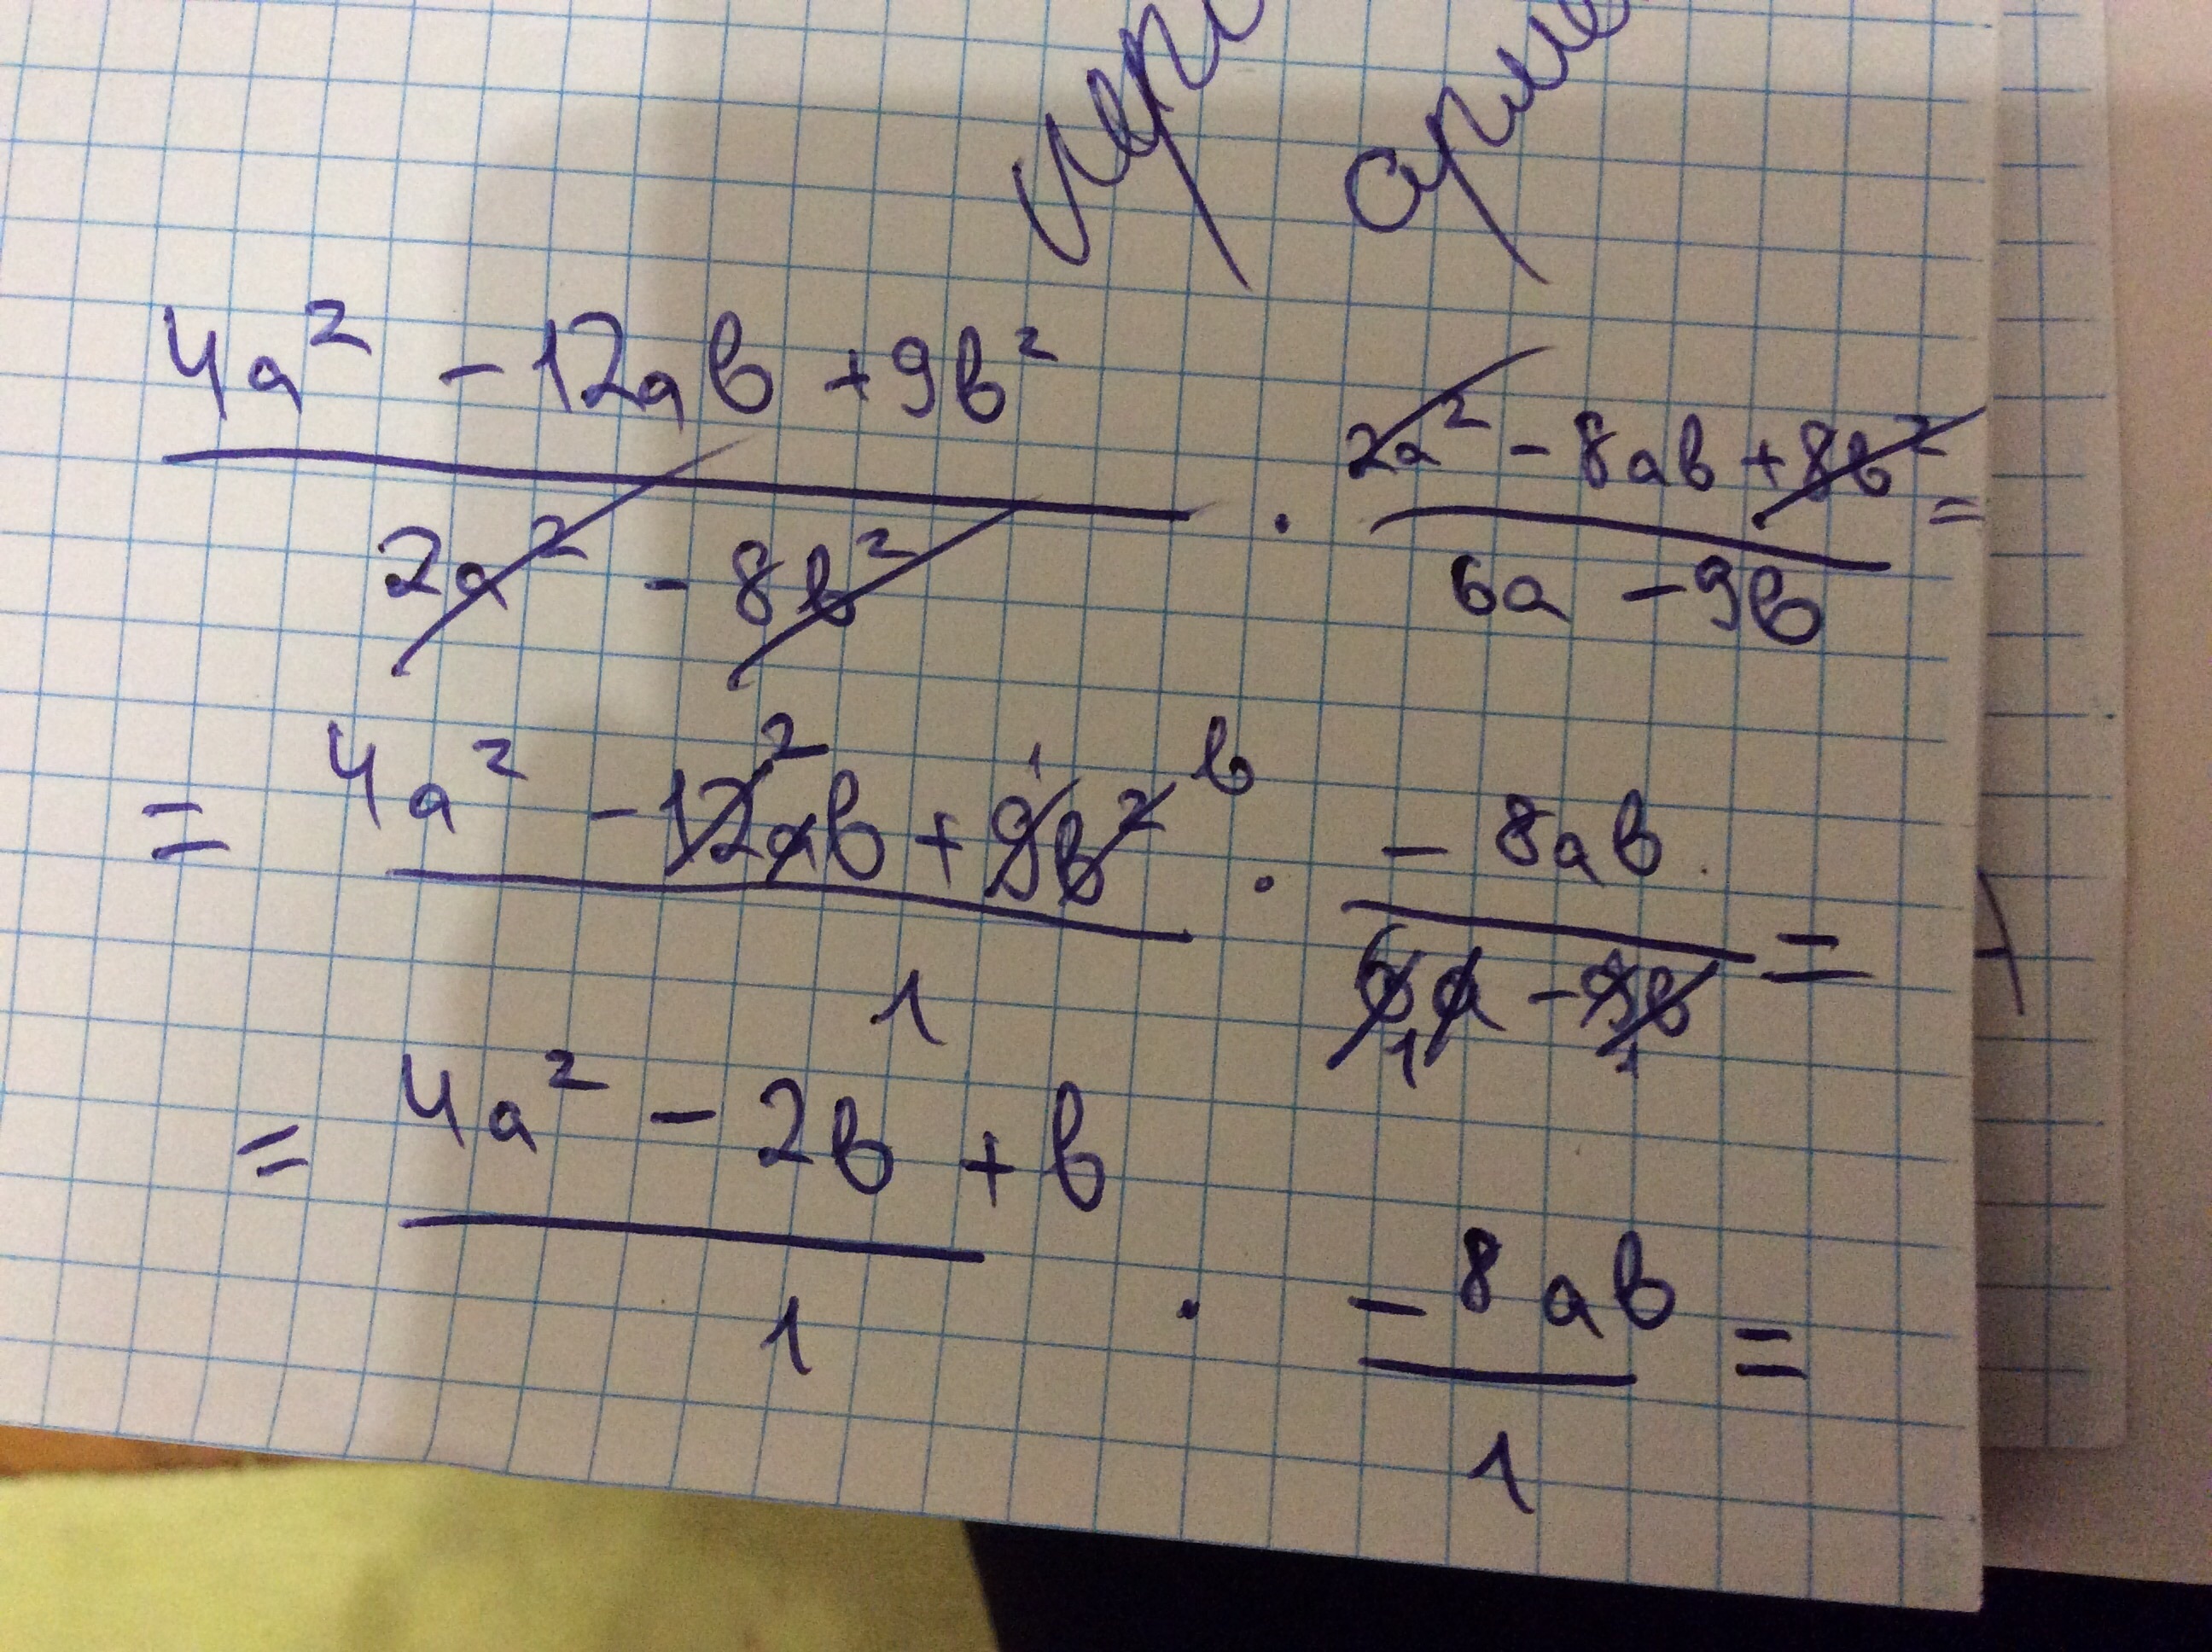 4a² - 12ab + 9b² / 2a² - 8b² · 2a² - 8ab + 8b² / 6a - 9b =
= 4a² - 12ab 2 + 9b² 1 b / 1 · - 8ab / 6a 1 - 9b 1 =
= 4a² - 2b + b / 1 · - 8ab / 1 =